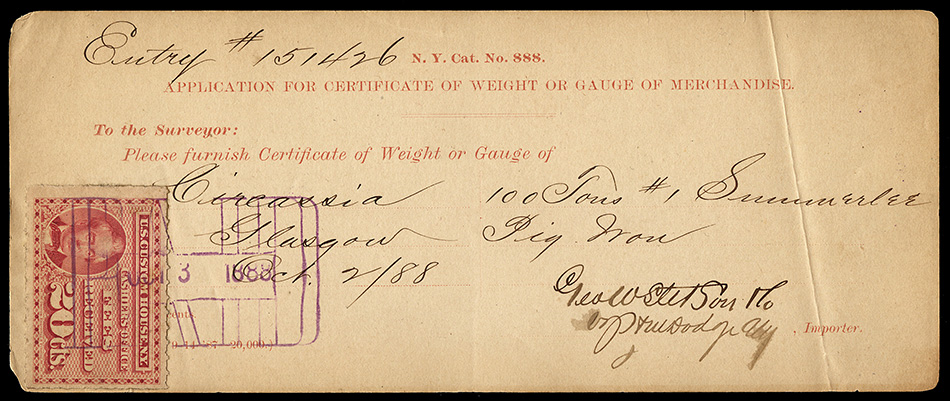 Entry # 151426 N. Y. Cat. No. 888.
APPLICATION FOR CERTIFICATE OF WEIGHT OR GAUGE OF MERCHANDISE.
To the Surveyor:
Please furnish Certificate of Weight or Gauge of
Circassia 100 Tons #1 Summerlee
Glasgow Pig Iron
Oct. 2/88
3 1888
Geo W Stetson & Co
, Importer.
cents.
20,000.)
U.S. CUSTOM HOUSE N.Y.
FEES
RECEIVED
20 CTS